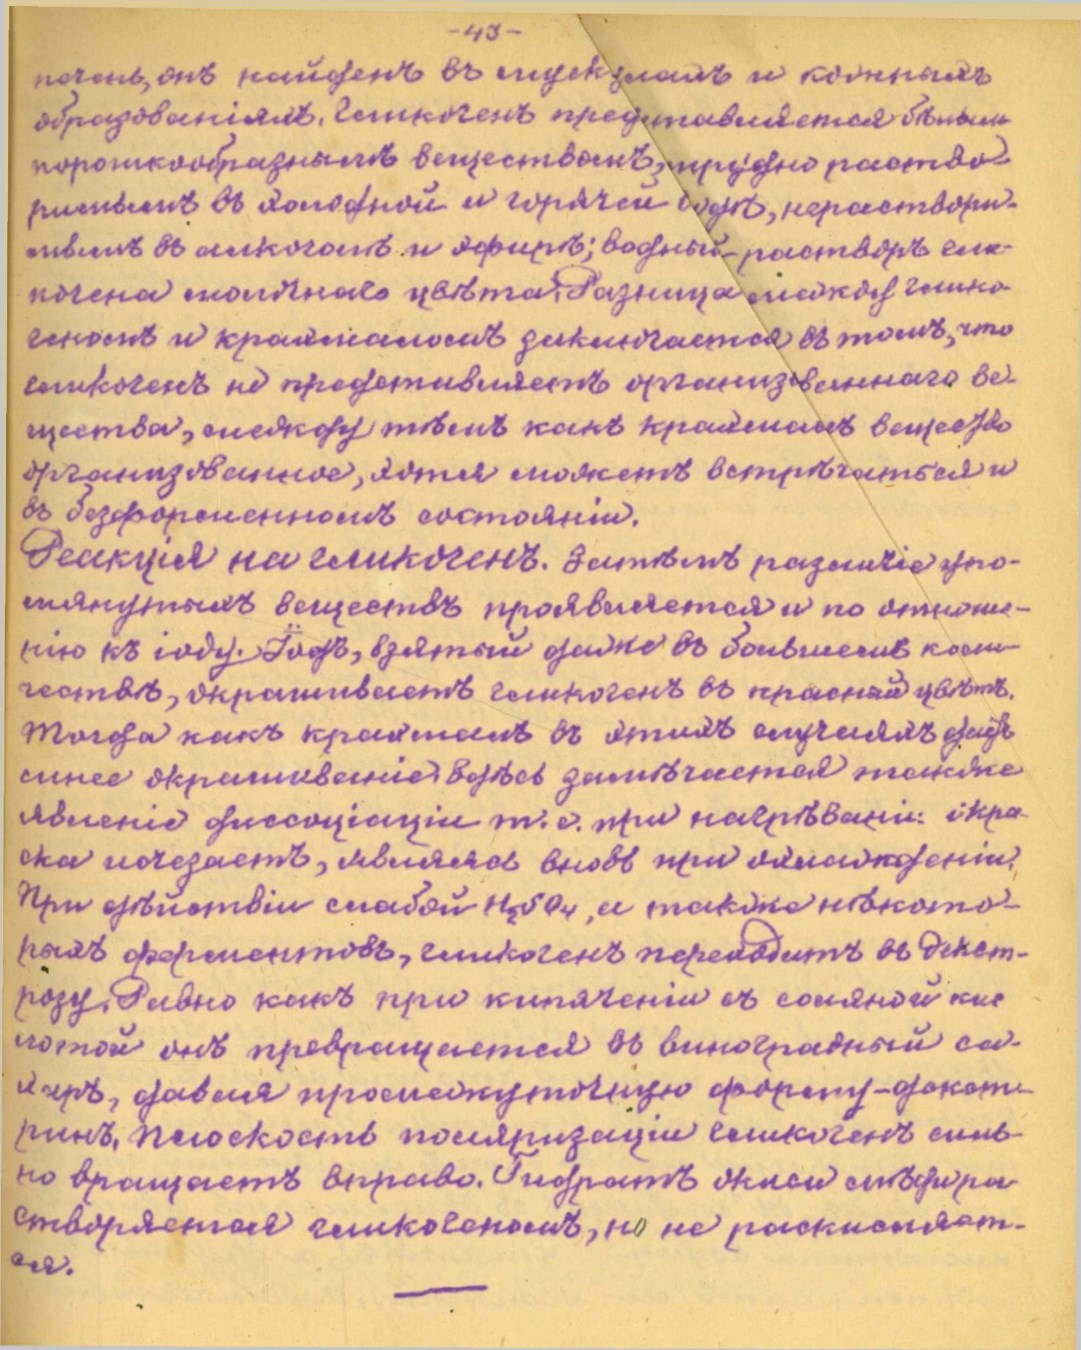 -43-
печень, онъ найденъ въ мускулахъ и кожныхъ
образованіяхъ. Гликогенъ представляется бѣлымъ
порошкообразнымъ веществомъ, трудно раство-
римымъ въ холодной и горячей водѣ, нераствори-
мымъ въ алкоголѣ и эфирѣ; водный растворъ гли-
когена молочнаго цвѣта. Разница между глико-
геномъ и крахмаломъ заключается въ томъ, что
гликогенъ не представляетъ организованнаго ве-
щества, между тѣмъ какъ крахмалъ вещество
организованное, хотя можетъ встрѣчаться и
въ безформенномъ состояніи.
Реакція на гликогенъ. Затѣмъ различіе упо-
мянутыхъ веществъ проявляется и по отноше-
нію къ іоду. Іодъ, взятый даже въ большомъ коли-
чествѣ, окрашиваетъ гликогенъ въ красный цвѣтъ.
Тогда какъ крахмалъ въ этихъ случаяхъ даетъ
синее окрашиваніе. Здѣсь замѣчается также
явленіе диссоціаціи т.е. при нагрѣваніи окра-
ска исчезаетъ, являясь вновь при охлажденіи.
При дѣйствіи слабой H₂SO₄, а также нѣкото-
рыхъ ферментовъ, гликогенъ переходитъ въ декст-
розу. Равно какъ при кипяченіи съ соляной кис
лотой онъ превращается въ виноградный са-
харъ, давая промежуточную форму-декст-
ринъ. Плоскость поляризаціи гликогенъ силь-
но вращаетъ вправо. Гидратъ окиси мѣди ра-
створяется гликогеномъ, но не раскисляет-
ся.